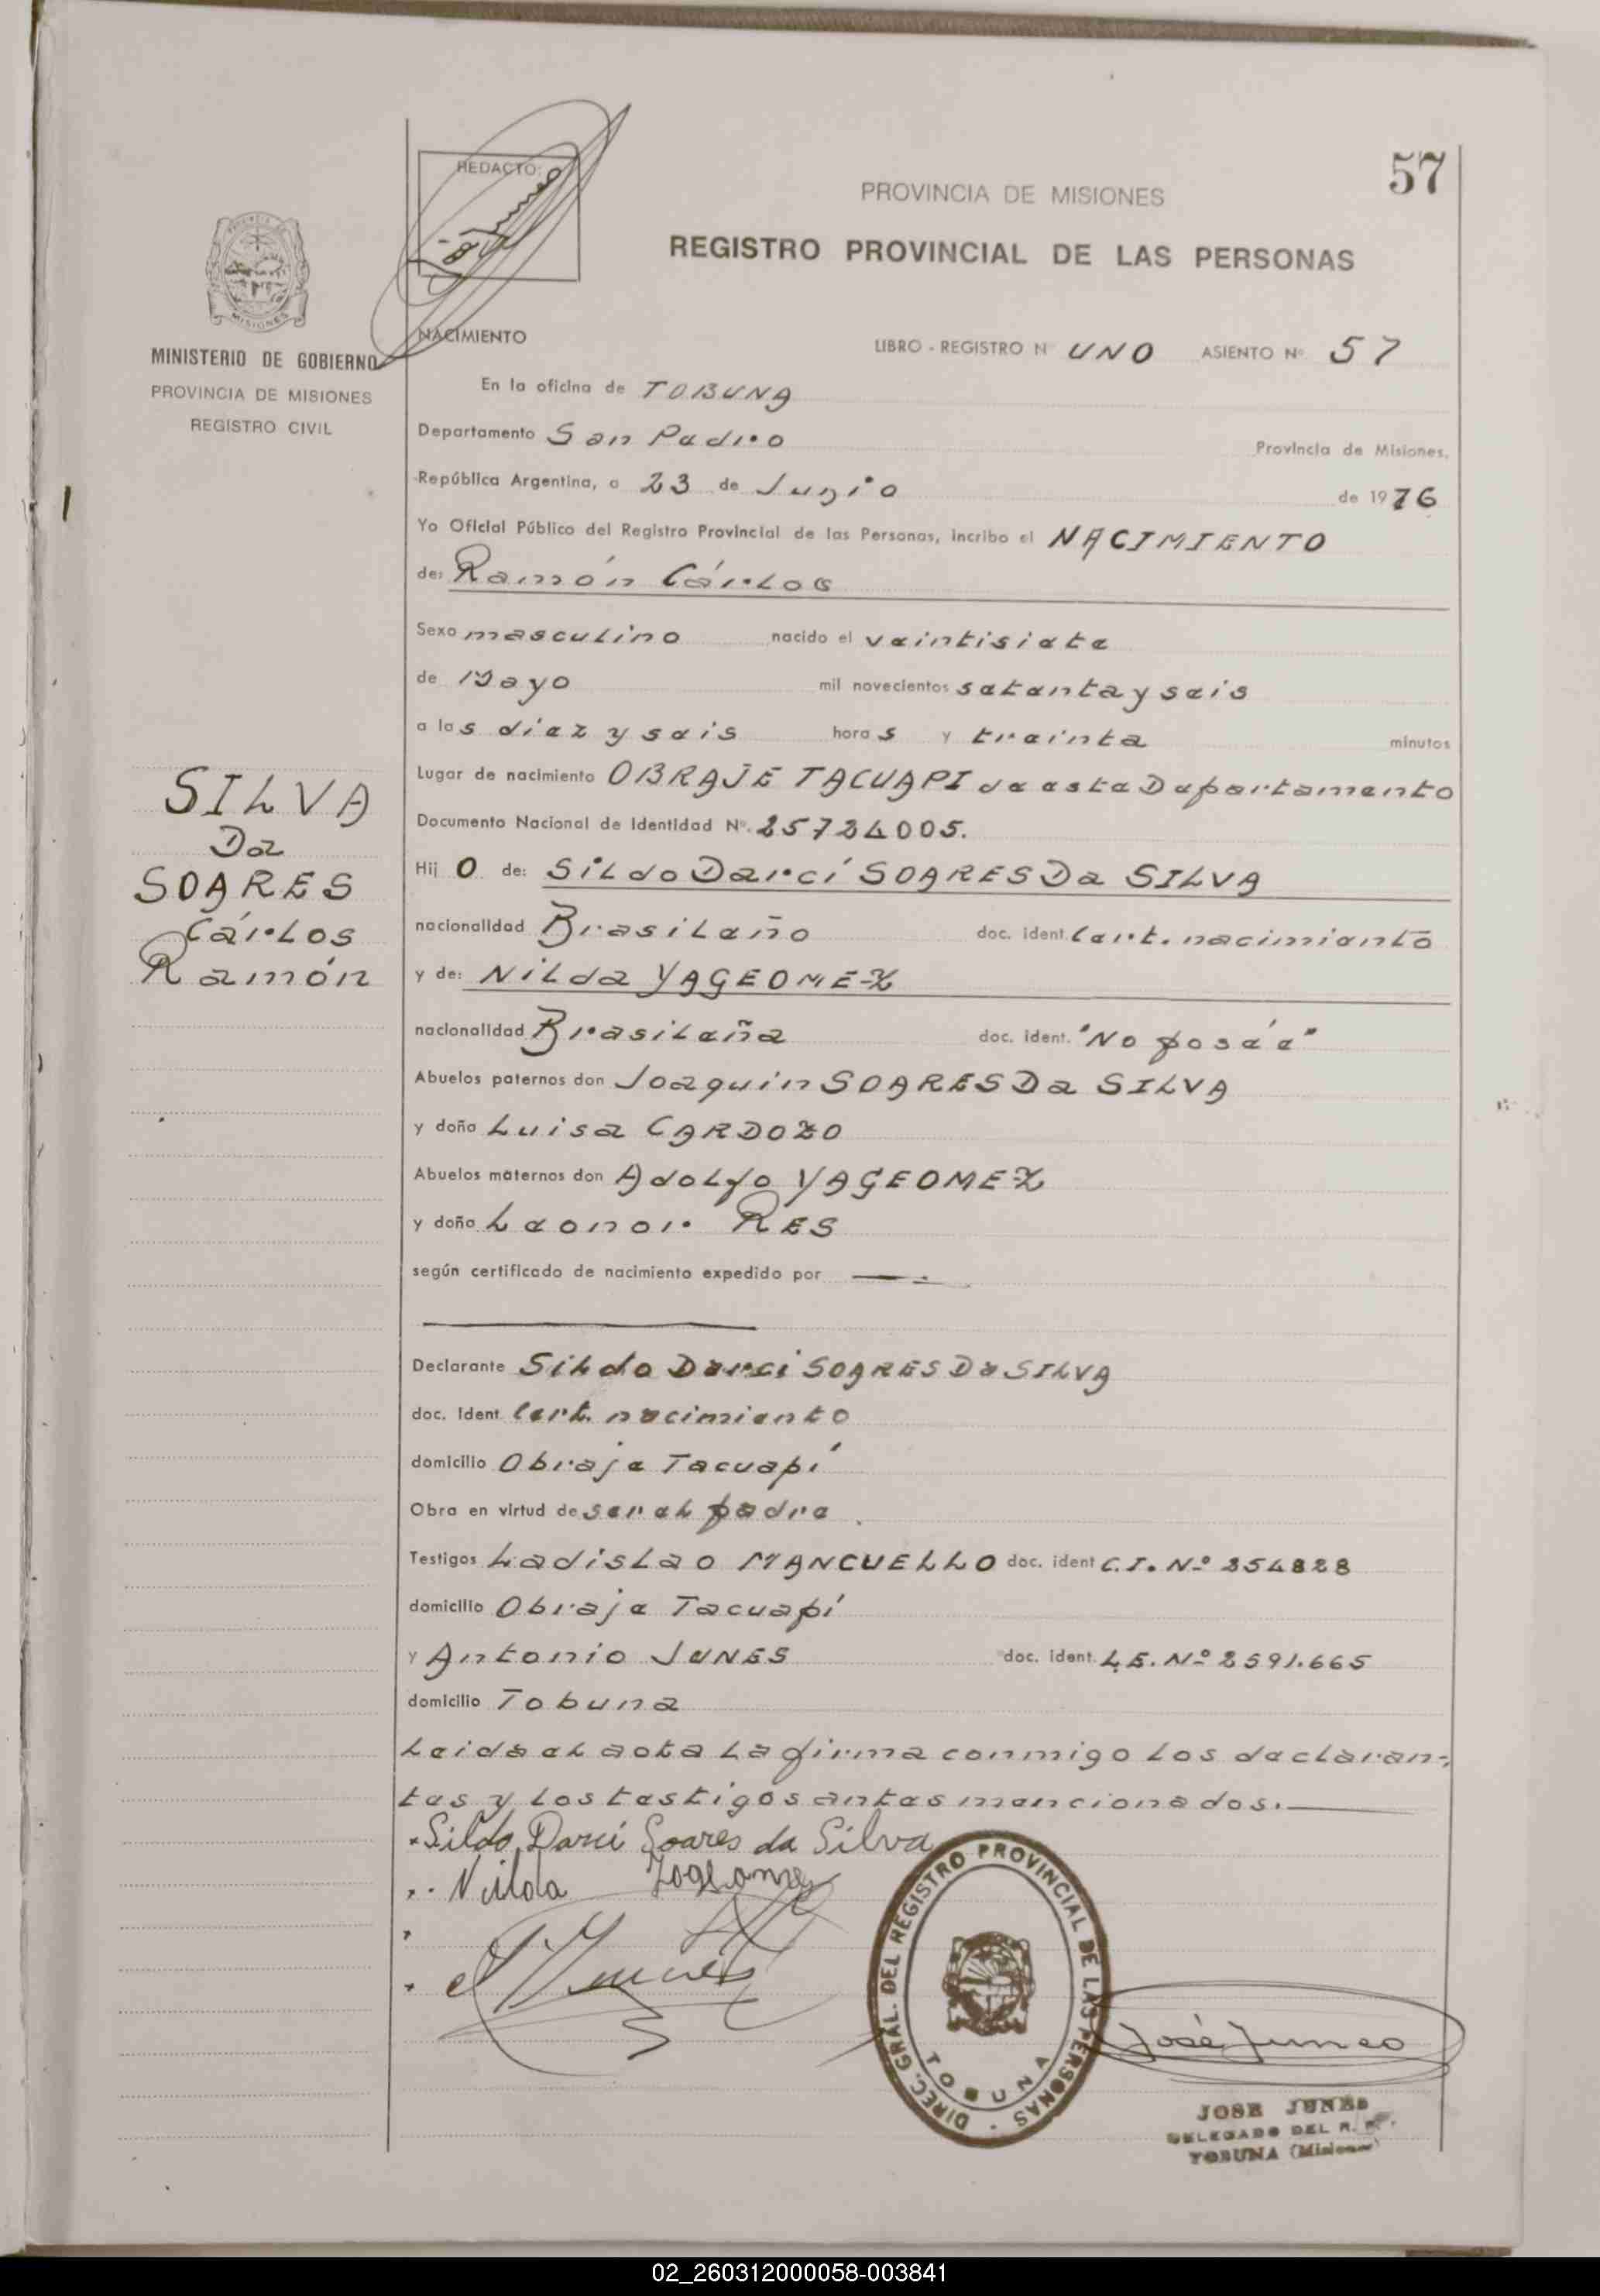 57
REDACTO:
PROVINCIA DE MISIONES
REGISTRO PROVINCIAL DE LAS PERSONAS
MISIONES
MINISTERIO DE GOBIERNO
PROVINCIA DE MISIONES
REGISTRO CIVIL
NACIMIENTO
LIBRO - REGISTRO N UNO ASIENTO Nº 57
En la oficina de TOBUNA
Departamento San Pedro Provincia de Misiones.
República Argentina, a 23 de Junio de 1976
Yo Oficial Público del Registro Provincial de las Personas, incribo el NACIMIENTO
de: Ramón Cárlos
Sexo masculino nacido el veintisiete
de Mayo mil novecientos setenta y seis
a las diez y seis horas y treinta minutos
Lugar de nacimiento OBRAJE TACUAPI de este Departamento
Documento Nacional de Identidad Nº 25724005.
Hijo de: Sildo Darcí SOARES Da SILVA
nacionalidad Brasileño doc. ident. Cert. nacimiento
y de: Nilda YAGEOMEZ
nacionalidad Brasileña doc. ident. "No poseé"
Abuelos paternos don Joaquin SOARES Da SILVA
y doña Luisa CARDOZO
Abuelos maternos don Adolfo YAGEOMEZ
y doña Leonor RES
según certificado de nacimiento expedido por
Declarante Sildo Darci SOARES Da SILVA
doc. Ident. Cert. nacimiento
domicilio Obraje Tacuapí
Obra en virtud de ser el padre.
Testigos Ladislao MANCUELLO doc. ident C.I. Nº 254828
domicilio Obraje Tacuapí
y Antonio JUNES doc. ident. L.E. Nº 2591.665
domicilio Tobuna
Leida el acta la firma conmigo los declaran-
tes y los testigos antes mencionados.
SILVA
Da
SOARES
Cárlos
Ramón
Sildo Darci Soares da Silva
Nilda
DIREC. GRAL. DEL REGISTRO PROVINCIAL DE LAS PERSONAS
TOBUNA
José Junes
JOSE JUNES
DELEGADO DEL R. P.
TOBUNA (Misiones)
02_260312000058-003841